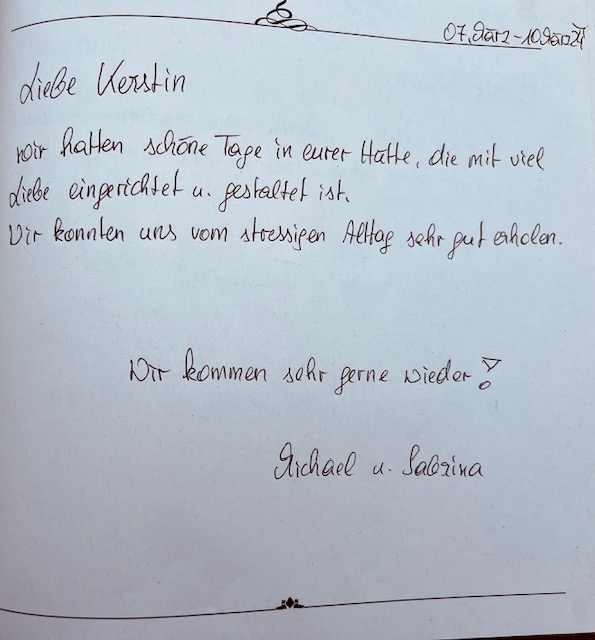 07. März - 10. März 24
Liebe Kerstin
wir hatten schöne Tage in eurer Hütte, die mit viel
Liebe eingerichtet u. gestaltet ist.
Wir konnten uns vom stressigen Alltag sehr gut erholen.
Wir kommen sehr gerne wieder!
Michael u. Sabrina